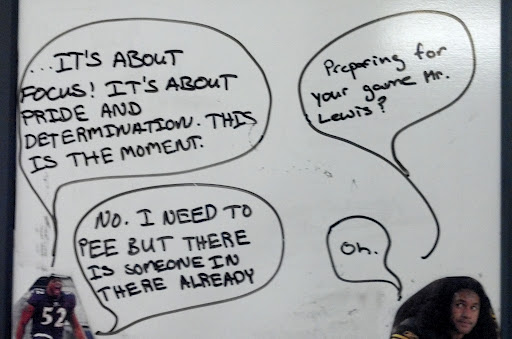 ...IT'S ABOUT
FOCUS! IT'S ABOUT
PRIDE AND
DETERMINATION. THIS
IS THE MOMENT.
Preparing for
your game Mr.
Lewis?
NO. I NEED TO
PEE BUT THERE
IS SOMEONE IN
THERE ALREADY
Oh.
52